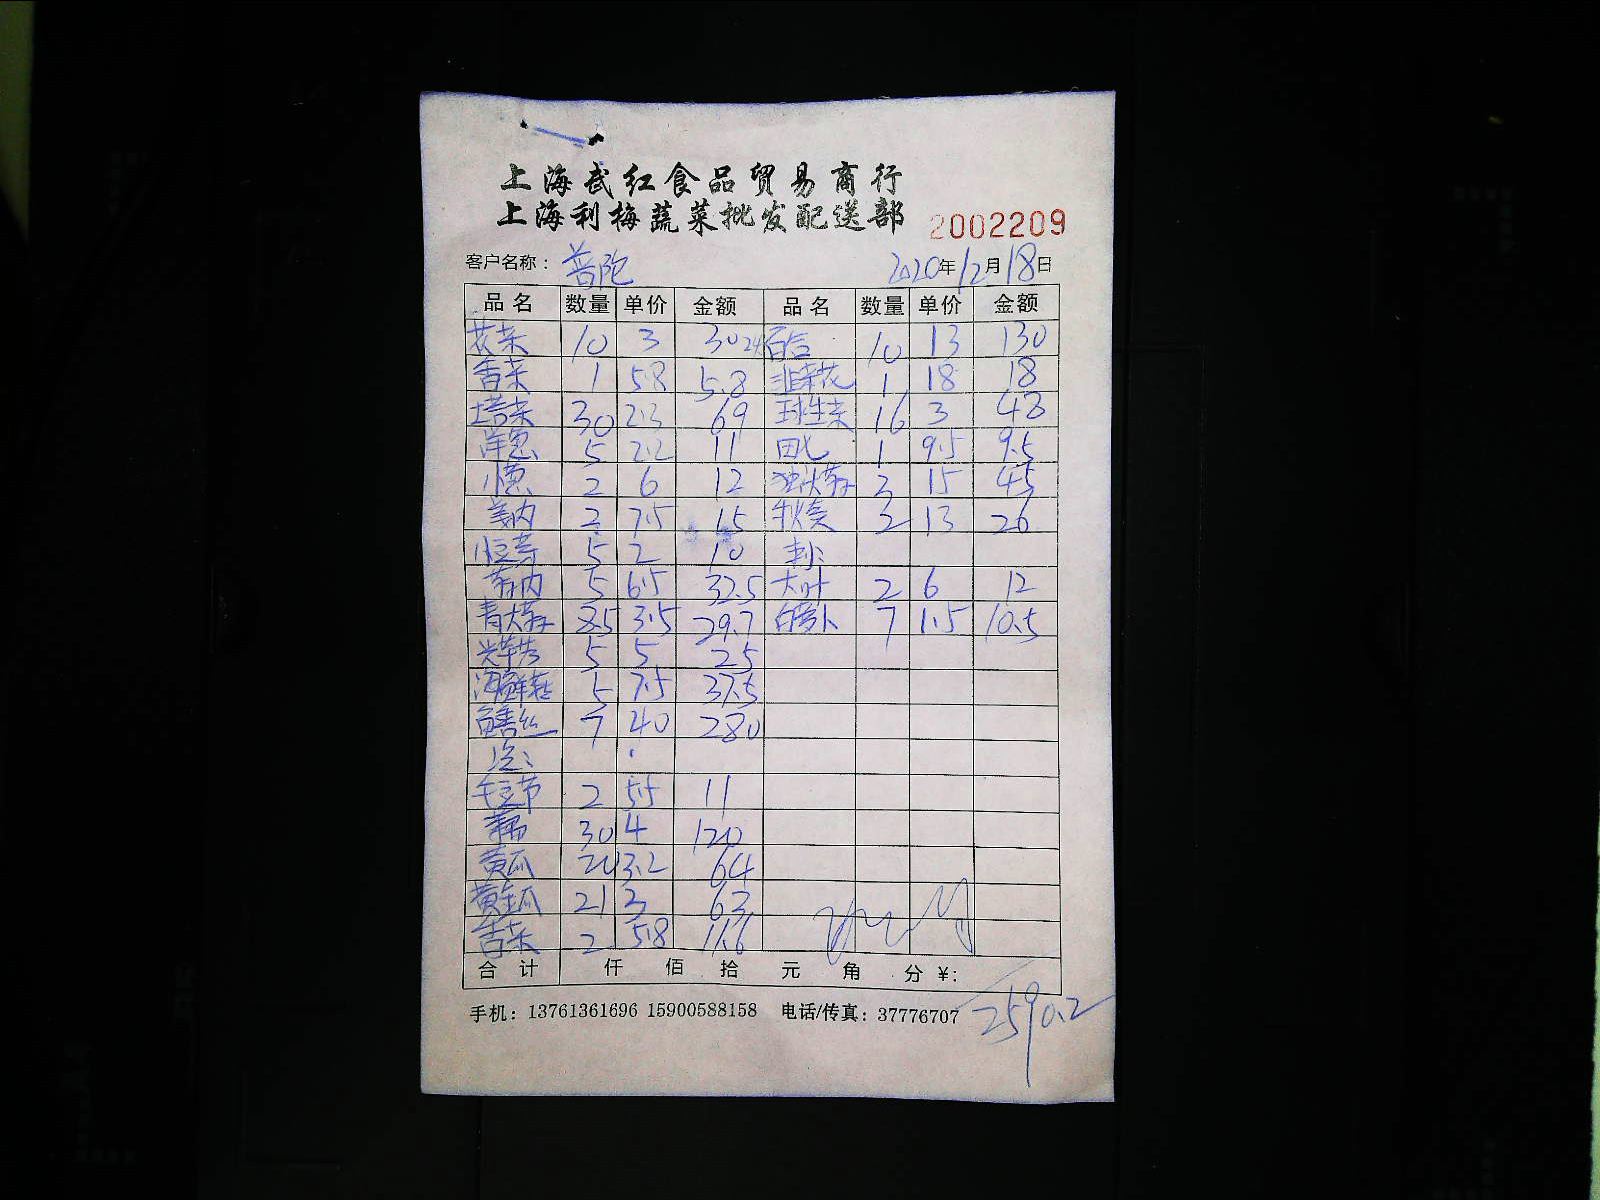 上海武红食品贸易商行
上海利梅蔬菜批发配送部 2002209
客户名称： 普陀 2020年12月18日
品名 数量 单价 金额 品名 数量 单价 金额
花菜 10 3 30 24 百合 10 13 130
香菜 1 5.8 5.8 韭菜花 1 18 18
塔菜 30 2.3 69 球生菜 16 3 48
洋葱 5 2.2 11 田七 1 9.5 9.5
小葱 2 6 12 独大蒜子 3 15 45
姜肉 2 7.5 15 秋葵 2 13 26
小豆芽 5 2 10
蒜肉 5 6.5 32.5 大叶 2 6 12
青大蒜子 8.5 3.5 29.7 白萝卜 7 1.5 10.5
5 5 25
海鲜菇 5 7.5 37.5
鳝丝 7 40 280
毛豆节 2 5.5 11
30 4 120
黄瓜 20 3.2 64
黄金瓜 21 3 63
苦菜 2 5.8 11.6
合计 仟 佰 拾 元 角 分 ¥: 2590.2
手机：13761361696 15900588158 电话/传真：37776707